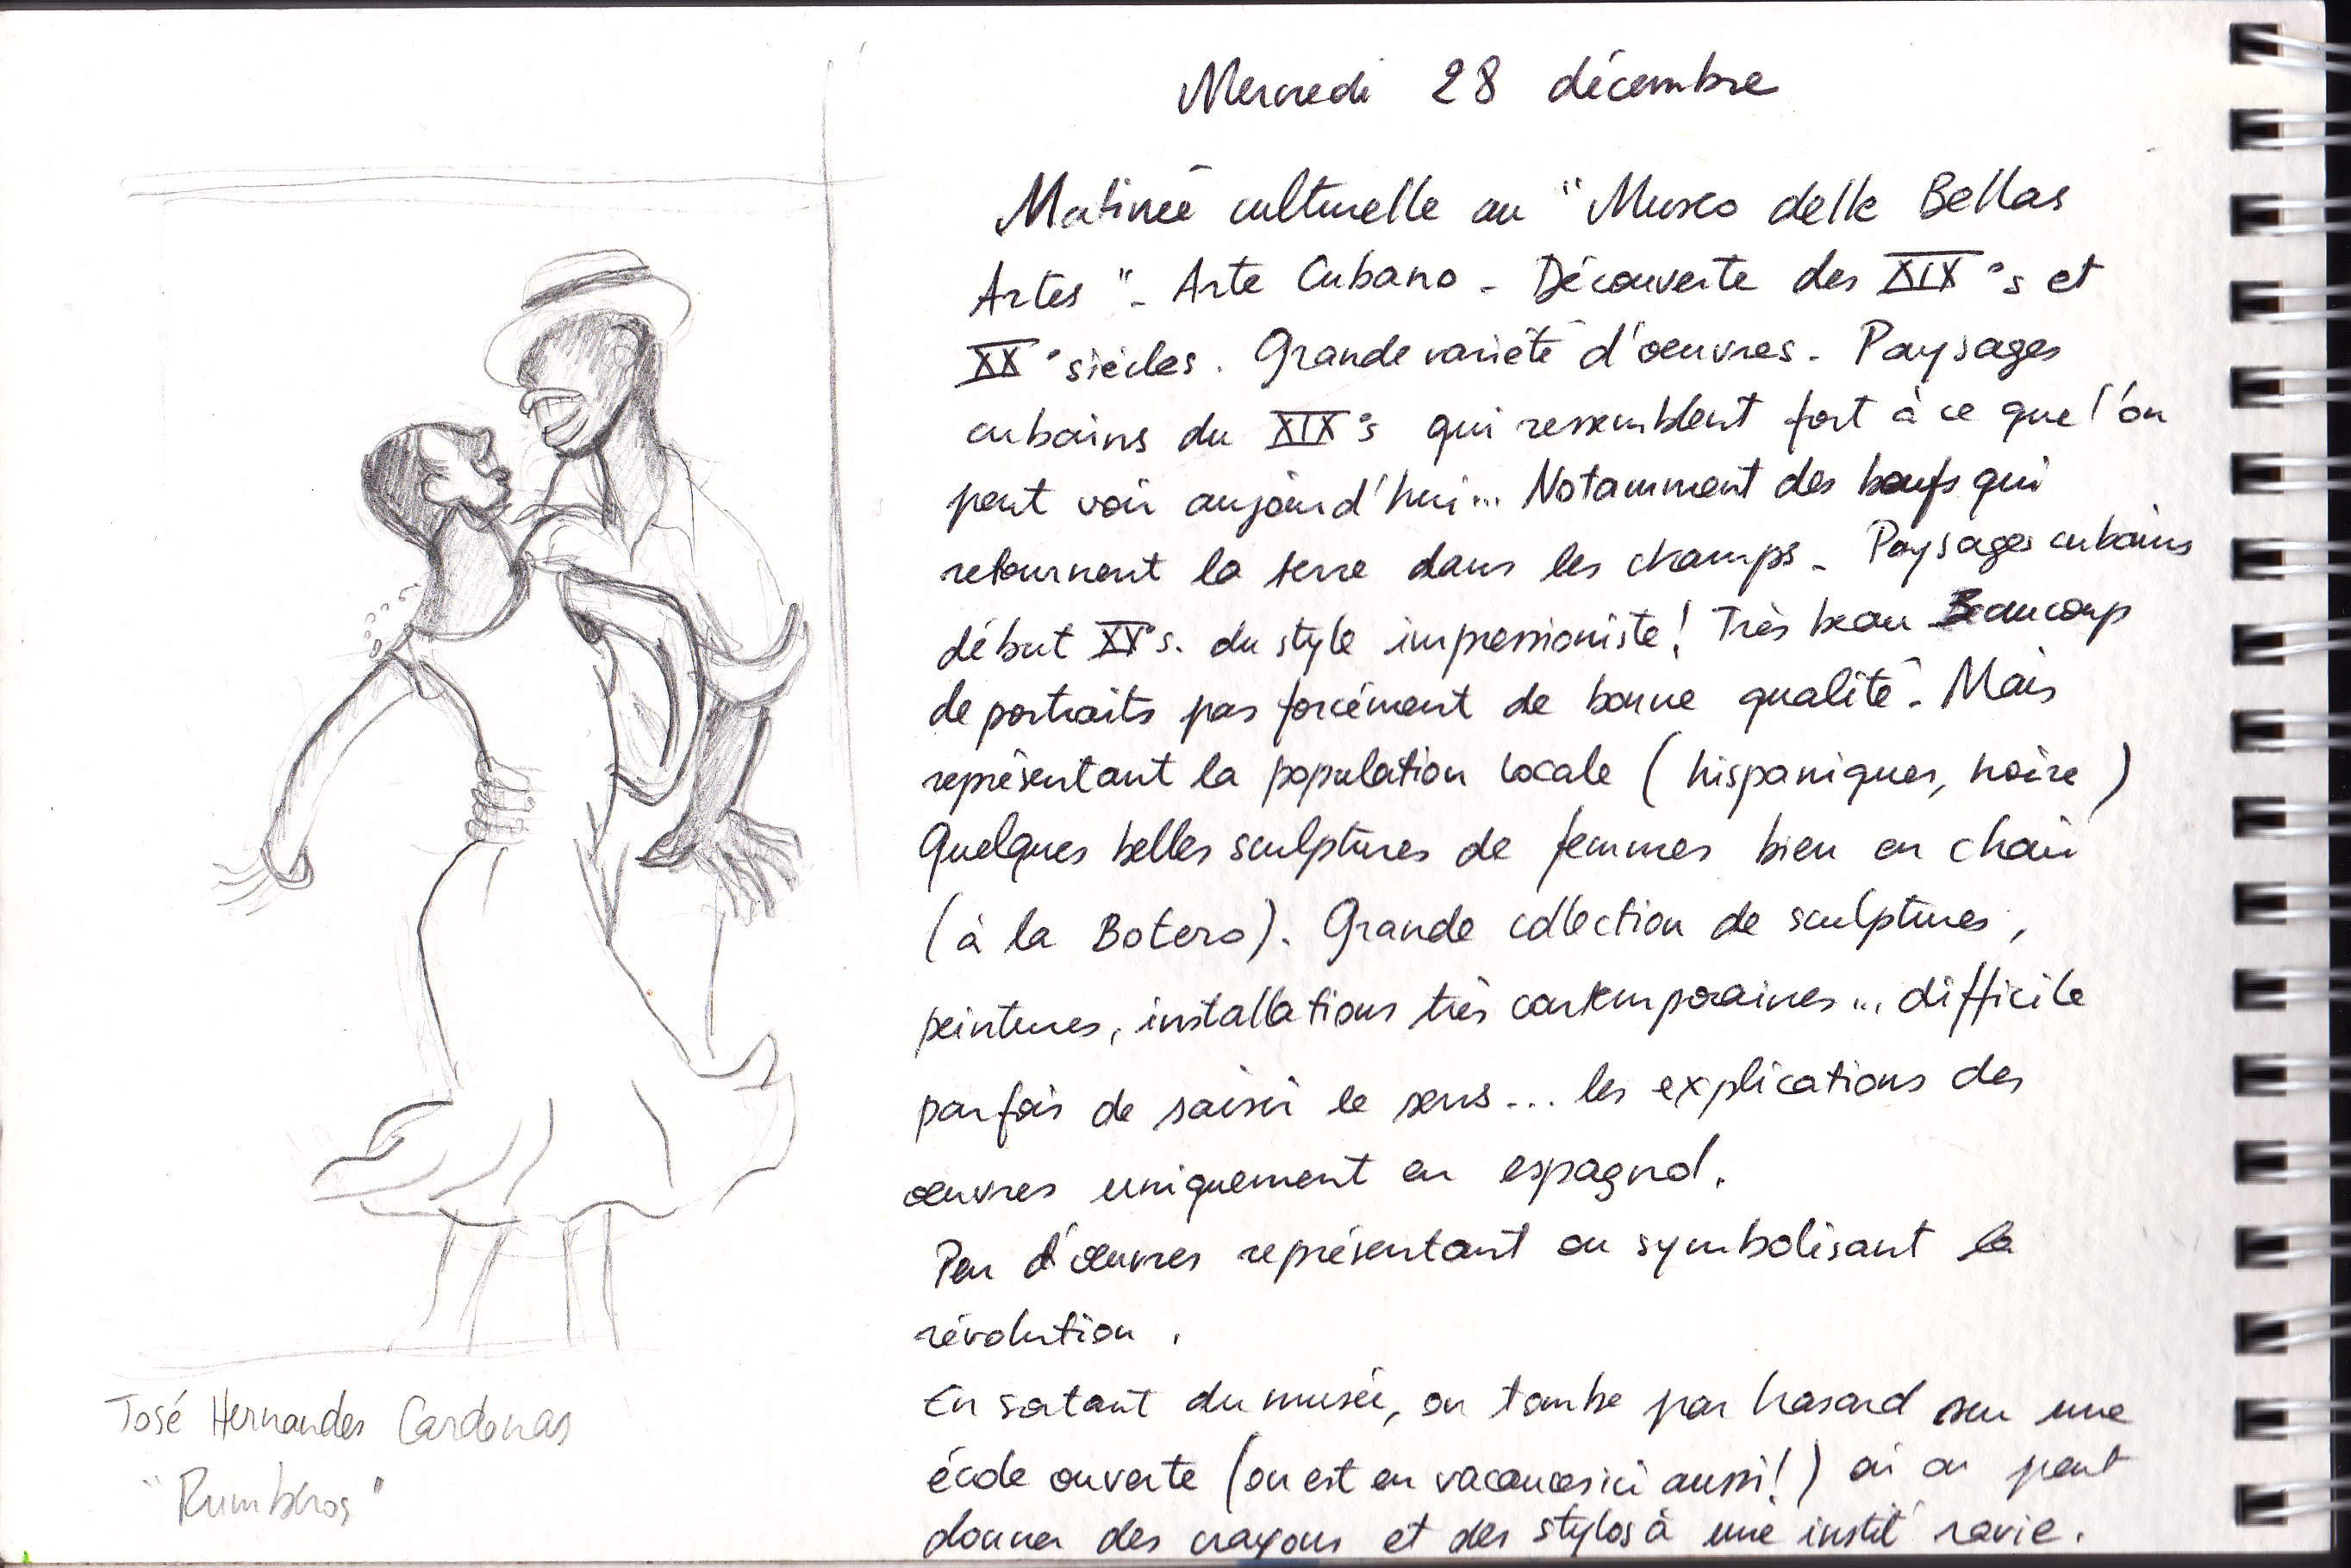 Mercredi 28 décembre
Matinée culturelle au "Museo delle Bellas
Artes" - Arte Cubano - Découverte des XIX°s et
XX°siècles. Grande variété d'oeuvres - Paysages
cubains du XIX°s qui ressemblent fort à ce que l'on
peut voir aujourd'hui... Notamment des boeufs qui
retournent la terre dans les champs - Paysages cubains
début XX°s. du style impressioniste! Très beau Beaucoup
de portraits pas forcément de bonne qualité. Mais
représentant la population locale (hispaniques, noire)
Quelques belles sculptures de femmes bien en chair
(à la Botero). Grande collection de sculptures,
peintures, installations très contemporaines... difficile
parfois de saisir le sens... les explications des
oeuvres uniquement en espagnol.
Peu d'oeuvres représentant ou symbolisant la
révolution.
En sortant du musée, on tombe par hasard sur une
école ouverte (on est en vacances ici aussi!) où on peut
donner des crayons et des stylos à une instit' ravie.
José Hernandes Cardenas
"Rumberos"